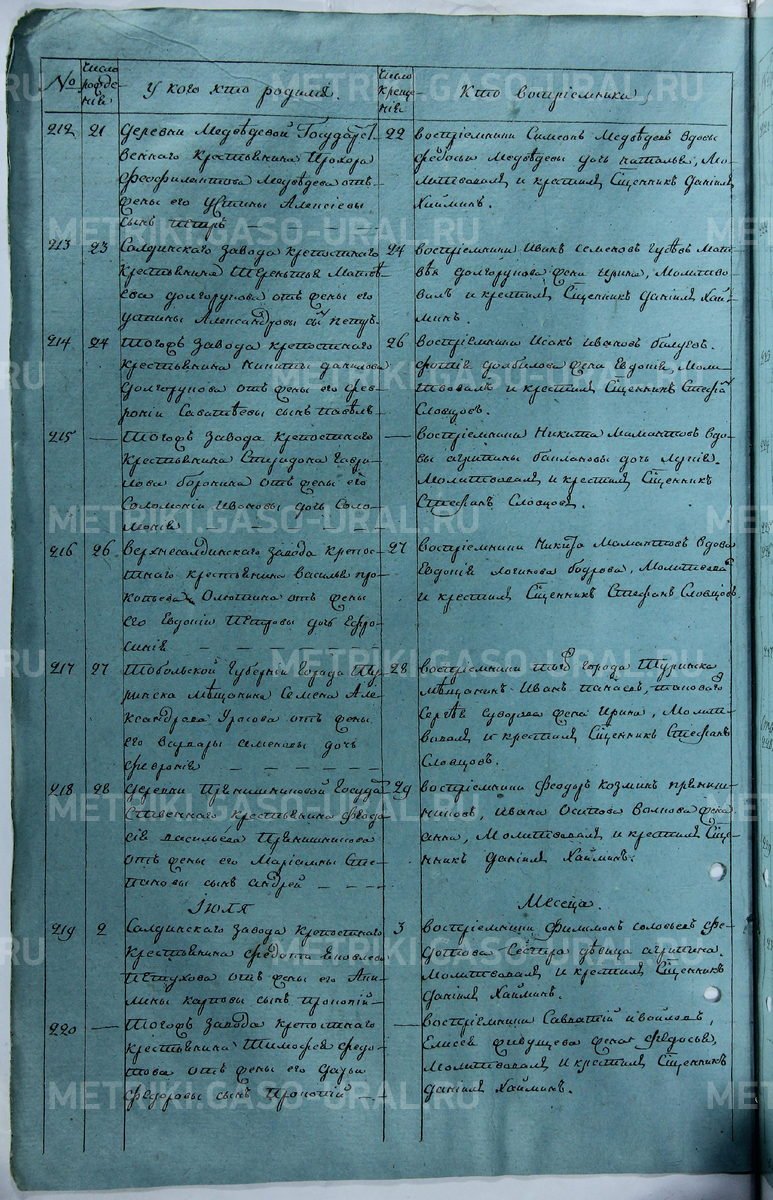 №
Число рожденія
У кого кто родился.
Число крещенія
Кто воспріемники
212 21 Деревни Медвѣдевой Государст
веннаго крестьянина Прохора
Феофилактова Медвѣдева отъ
жены его Устины Алексіевы
сынъ Петръ
22 воспріемники Симеонъ Медвѣдевъ вдовы
Федосьи Медвѣдевы дочь наталья, Мо-
литвовалъ и крестилъ Сщенникъ Даніилъ
Хайминъ.
213 23 Салдинскаго завода крепостнаго
крестьянина Терентья Матвѣ
ева долгорукова отъ жены его
устины Александровы сынъ петръ.
24 воспріемники Иванъ семеновъ Мат
вѣя долгорукова жена ирина, Молитво-
валъ и крестилъ Сщенникъ даніилъ Хай-
минъ.
214 24 Тогожъ завода крепостнаго
крестьянина Никиты данилова
Долгорукова отъ жены его фев-
роніи Саватѣевы сынъ павелъ
26 воспріемники Исакъ Ивановъ
жена Евдокія, Моли-
твовалъ и крестилъ Сщенникъ Стефанъ
Словцовъ.
215 — Тогожъ завода крепостнаго
крестьянина Спиридона Гаври-
лова отъ жены его
Соломоніи Ивановы дочь Соло-
монія
— воспріемники Никита Мамантовъ вдо-
вы агрипины дочь
Молитвовалъ и крестилъ Сщенникъ
Стефанъ Словцовъ.
216 26 верхнесалдинскаго завода крепос-
тнаго крестьянина Василья про-
копьева отъ жены
его Евдокіи Петровы дочь Ефро-
синія
27 воспріемники Никита Мамантовъ вдова
Евдокія логинова бодрова, Молитвовалъ
и крестилъ Сщенникъ Стефанъ Словцовъ.
217 27 Тобольской Губерніи Города Ту-
ринска мѣщанина Семена Але-
ксандрова отъ жены
его Варвары семеновы дочь
февронія
28 воспріемники тогожъ города Туринска
мѣщанинъ Иванъ панаевъ, таковаго
Сергѣя суворова жена Ирина, Молит-
вовалъ и крестилъ Сщенникъ Стефанъ
Словцовъ.
218 28 Деревни Прянишниковой Госуда
рственнаго крестьянина Феодо
сія васильева Прянишникова
отъ жены его Маріамны Сте-
пановы сынъ андрей
29 воспріемники Феодоръ козминъ пряниш-
никовъ, ивана Осипова Волкова жена
анна, Молитвовалъ и крестилъ Сще-
нникъ Даніилъ Хайминъ.
Іюля Месяца.
219 2 Салдинскаго завода крепостнаго
крестьянина федота яковлева
Петухова отъ жены его Аки-
лины карповы сынъ прокопій
3 воспріемники Филимонъ соловьевъ фе-
дотова сестра дѣвица агрипина.
Молитвовалъ и крестилъ Сщенникъ
Даніилъ Хайминъ.
220 — Тогожъ завода крепостнаго
крестьянина Тимофея федо-
това отъ жены его Дарьи
Федоровы сынъ Прокопій
— воспріемники Савватій
Елисея жена Федосья,
Молитвовалъ и крестилъ Сщенникъ
Даніилъ Хайминъ.
METRIKI.GASO-URAL.RU